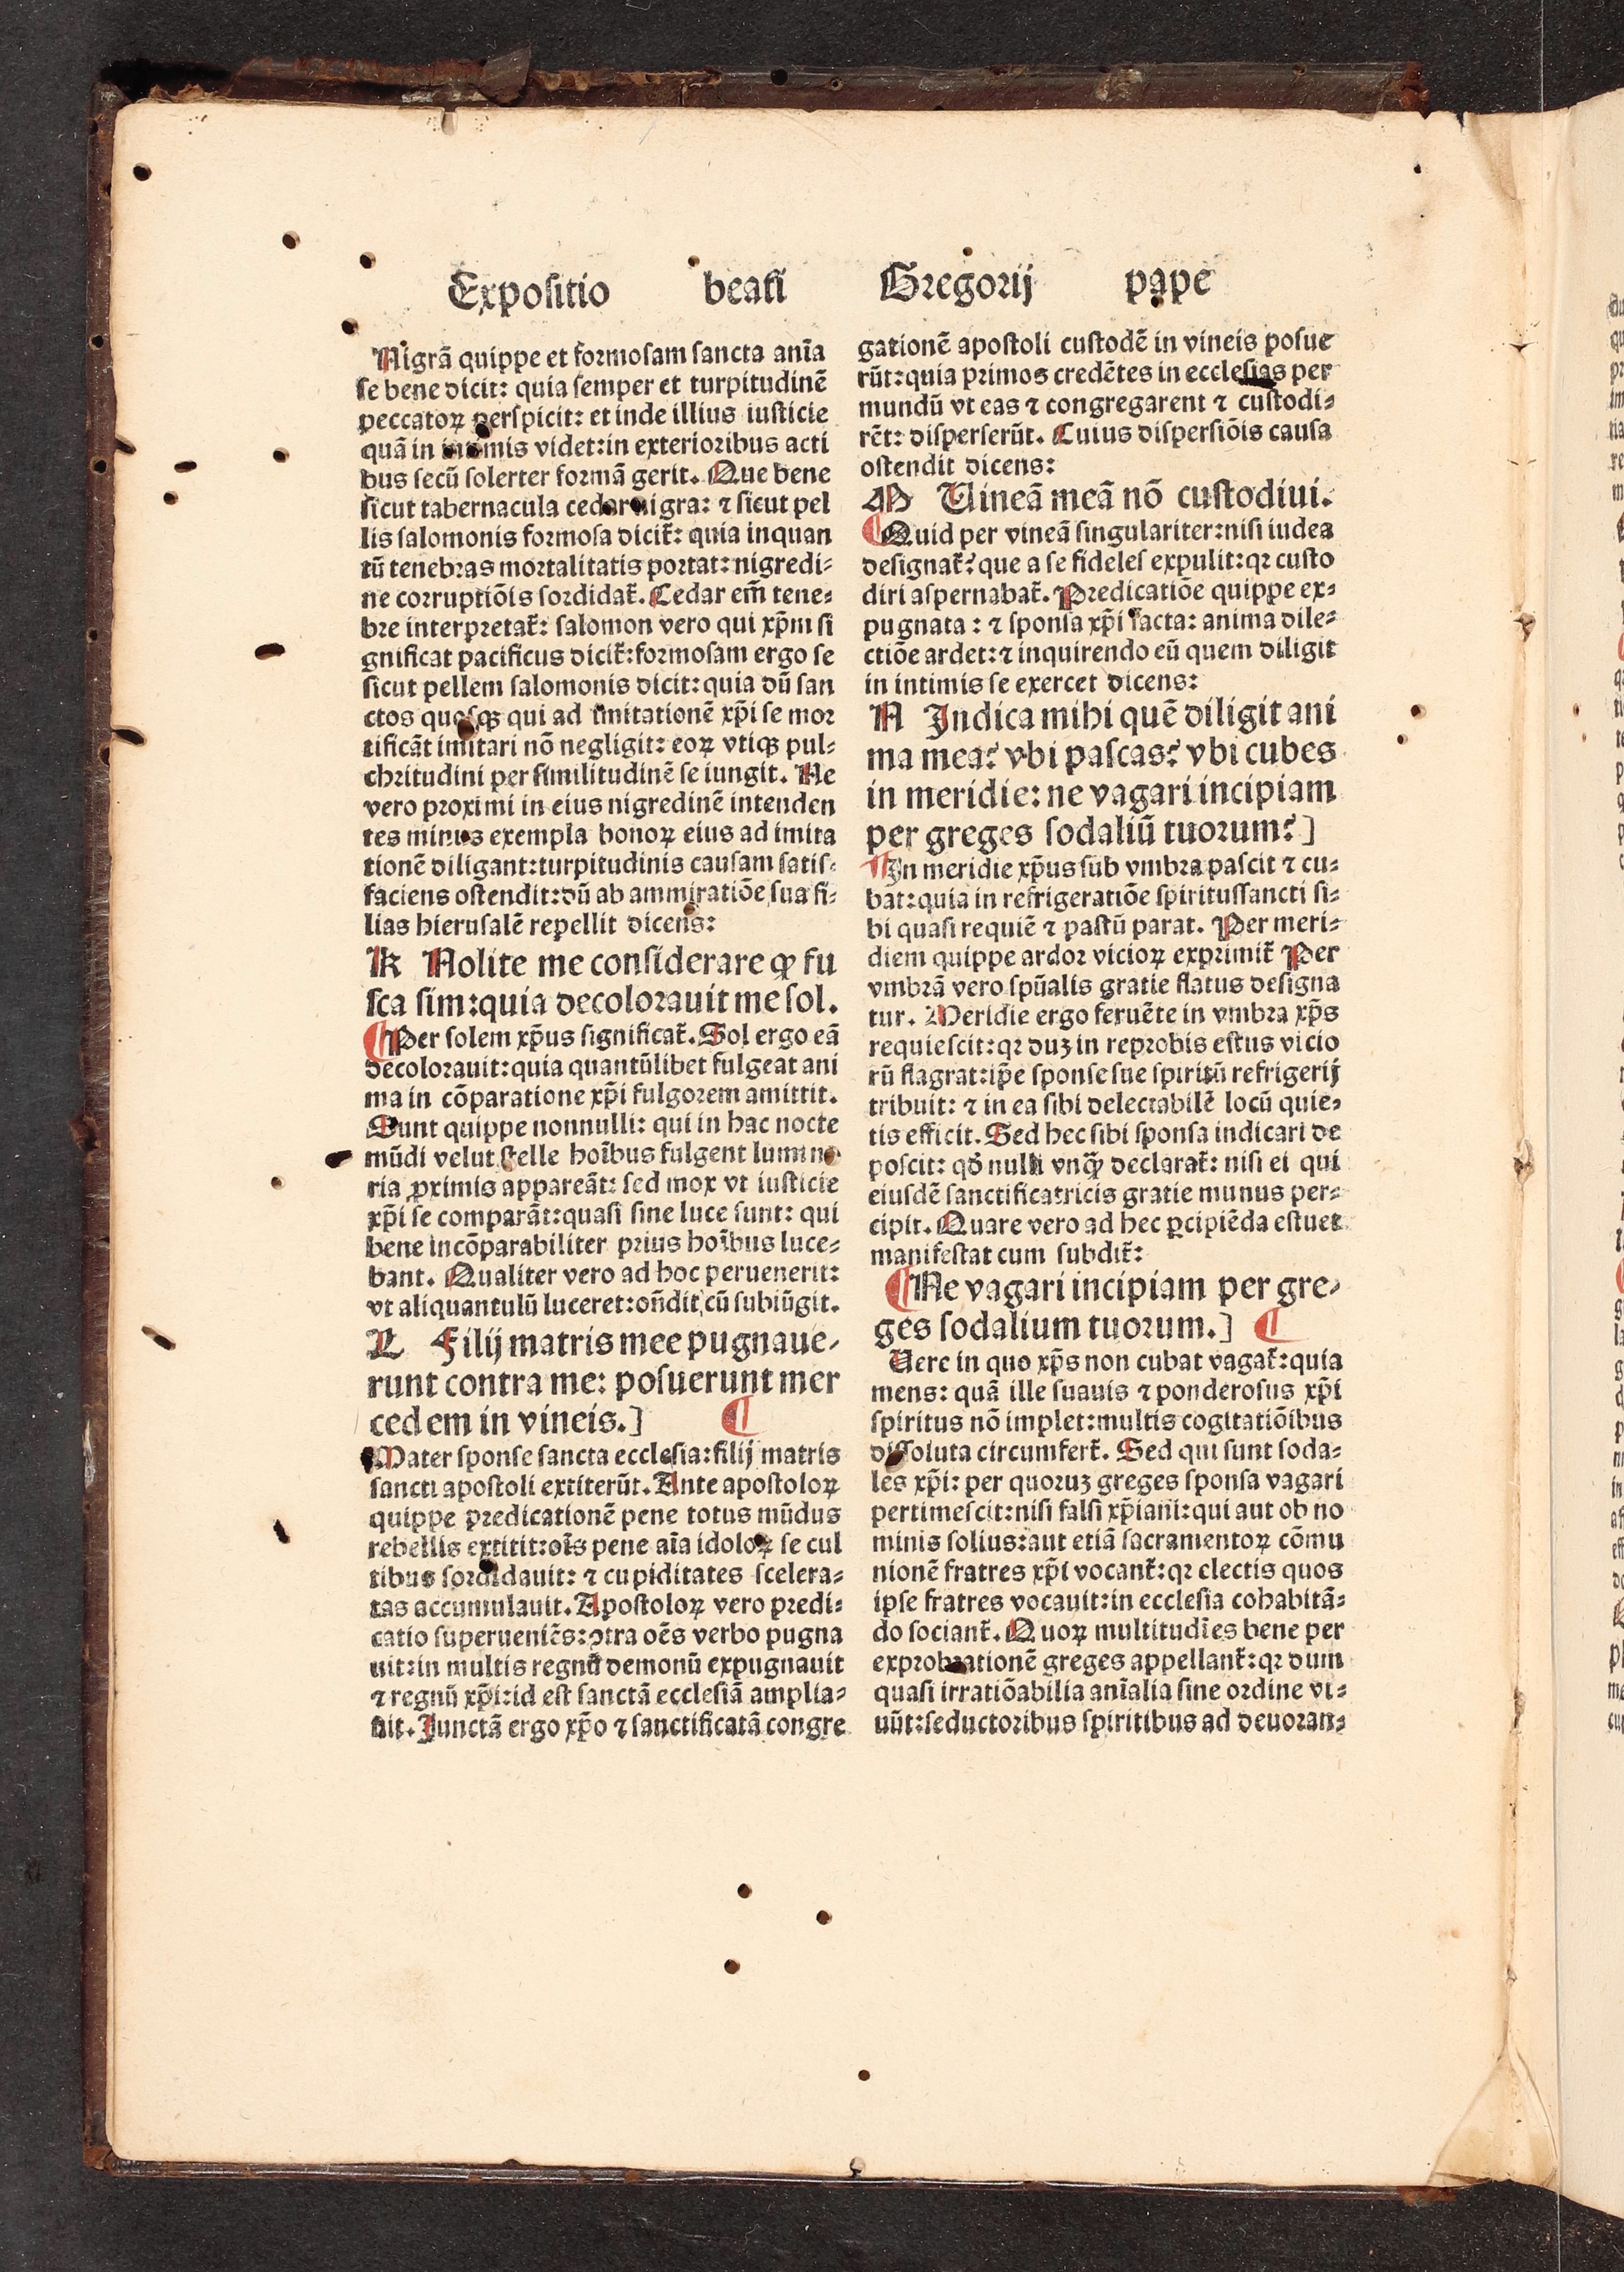 Expositio beati Gregorij pape
Nigrã quippe et formosam sancta aĩa
se bene dicit: quia semper et turpitudinẽ
peccatoꝝ perspicit: et inde illius iusticie
quã in videt: in exterioribus acti
bus secũ solerter formã gerit. Que bene
sicut tabernacula cedar nigra: ⁊ sicut pel
lis salomonis formosa dicit̃: quia inquan
tũ tenebras mortalitatis portat: nigredi⸗
ne corruptiõis sordidat̃. Cedar em̃ tene⸗
bre interpretat̃: salomon vero qui xp̃m si
gnificat pacificus dicit̃: formosam ergo se
sicut pellem salomonis dicit: quia dũ san
ctos quosqꝫ qui ad imitationẽ xp̃i se mor
tificãt imitari nõ negligit: eoꝝ vtiqꝫ pul⸗
chritudini per similitudinẽ se iungit. Ne
vero proximi in eius nigredinẽ intenden
tes minus exempla bonoꝝ eius ad imita
tionẽ diligant: turpitudinis causam satis⸗
faciens ostendit: dũ ab ammiratiõe sua fi⸗
lias hierusalẽ repellit dicens:
K Nolite me considerare ꝙ fu
sca sim: quia decolorauit me sol.
¶ Per solem xp̃us significat̃. Sol ergo eã
decolorauit: quia quantũlibet fulgeat ani
ma in cõparatione xp̃i fulgorem amittit.
Sunt quippe nonnulli: qui in hac nocte
mũdi velut stelle hoĩbus fulgent
ria ꝓximis appareãt: sed mox vt iusticie
xp̃i se comparãt: quasi sine luce sunt: qui
bene incõparabiliter prius hoĩbus luce⸗
bant. Qualiter vero ad hoc peruenerit:
vt aliquantulũ luceret: oñdit, cũ subiũgit.
L Filij matris mee pugnaue⸗
runt contra me: posuerunt mer
cedem in vineis.] ¶
Mater sponse sancta ecclesia: filij matris
sancti apostoli extiterũt. Ante apostoloꝝ
quippe predicationẽ pene totus mũdus
rebellis extitit: oĩs pene aĩa idoloꝝ se cul
tibus sordidauit: ⁊ cupiditates scelera⸗
tas accumulauit. Apostoloꝝ vero predi⸗
catio superueniẽs: ꝯtra oẽs verbo pugna
uit: in multis regnũ demonũ expugnauit
⁊ regnũ xp̃i: id est sanctã ecclesiã amplia⸗
uit. Iunctã ergo xp̃o ⁊ sanctificatã congre
gationẽ apostoli custodẽ in vineis posue
rũt: quia primos credẽtes in ecclesias per
mundũ vt eas ⁊ congregarent ⁊ custodi⸗
rẽt: disperserũt. Cuius dispersiõis causa
ostendit dicens:
M Uineã meã nõ custodiui.
¶ Quid per vineã singulariter: nisi iudea
designat̃? que a se fideles expulit: qꝛ custo
diri aspernabat̃. Predicatiõe quippe ex⸗
pugnata: ⁊ sponsa xp̃i facta: anima dile⸗
ctiõe ardet: ⁊ inquirendo eũ quem diligit
in intimis se exercet dicens:
N Indica mihi quẽ diligit ani
ma mea? vbi pascas? vbi cubes
in meridie: ne vagari incipiam
per greges sodaliũ tuorum?]
¶ In meridie xp̃us sub vmbra pascit ⁊ cu⸗
bat: quia in refrigeratiõe spiritussancti si⸗
bi quasi requiẽ ⁊ pastũ parat. Per meri⸗
diem quippe ardor vicioꝝ exprimit̃ Per
vmbrã vero spũalis gratie flatus designa
tur. Meridie ergo feruẽte in vmbra xp̃s
requiescit: qꝛ duꝫ in reprobis estus vicio
rũ flagrat: ip̃e sponse sue spiritũ refrigerij
tribuit: ⁊ in ea sibi delectabilẽ locũ quie⸗
tis efficit. Sed hec sibi sponsa indicari de
poscit: qđ nulli vnꝙ̃ declarat̃: nisi ei qui
eiusdẽ sanctificatricis gratie munus per⸗
cipit. Quare vero ad hec ꝑcipiẽda estuet
manifestat cum subdit̃:
¶ Ne vagari incipiam per gre⸗
ges sodalium tuorum.] ¶
Uere in quo xp̃s non cubat vagat̃: quia
mens: quã ille suauis ⁊ ponderosus xp̃i
spiritus nõ implet: multis cogitatiõibus
dissoluta circumfert̃. Sed qui sunt soda⸗
les xp̃i: per quoruꝫ greges sponsa vagari
pertimescit: nisi falsi xp̃iani: qui aut ob no
minis solius: aut etiã sacramentoꝝ cõmu
nionẽ fratres xp̃i vocant̃: qꝛ electis quos
ipse fratres vocauit: in ecclesia cohabitã⸗
do sociant̃. Quoꝝ multitudĩes bene per
exprobrationẽ greges appellant̃: qꝛ dum
quasi irratiõabilia anĩalia sine ordine vi⸗
uũt: seductoribus spiritibus ad deuoran⸗